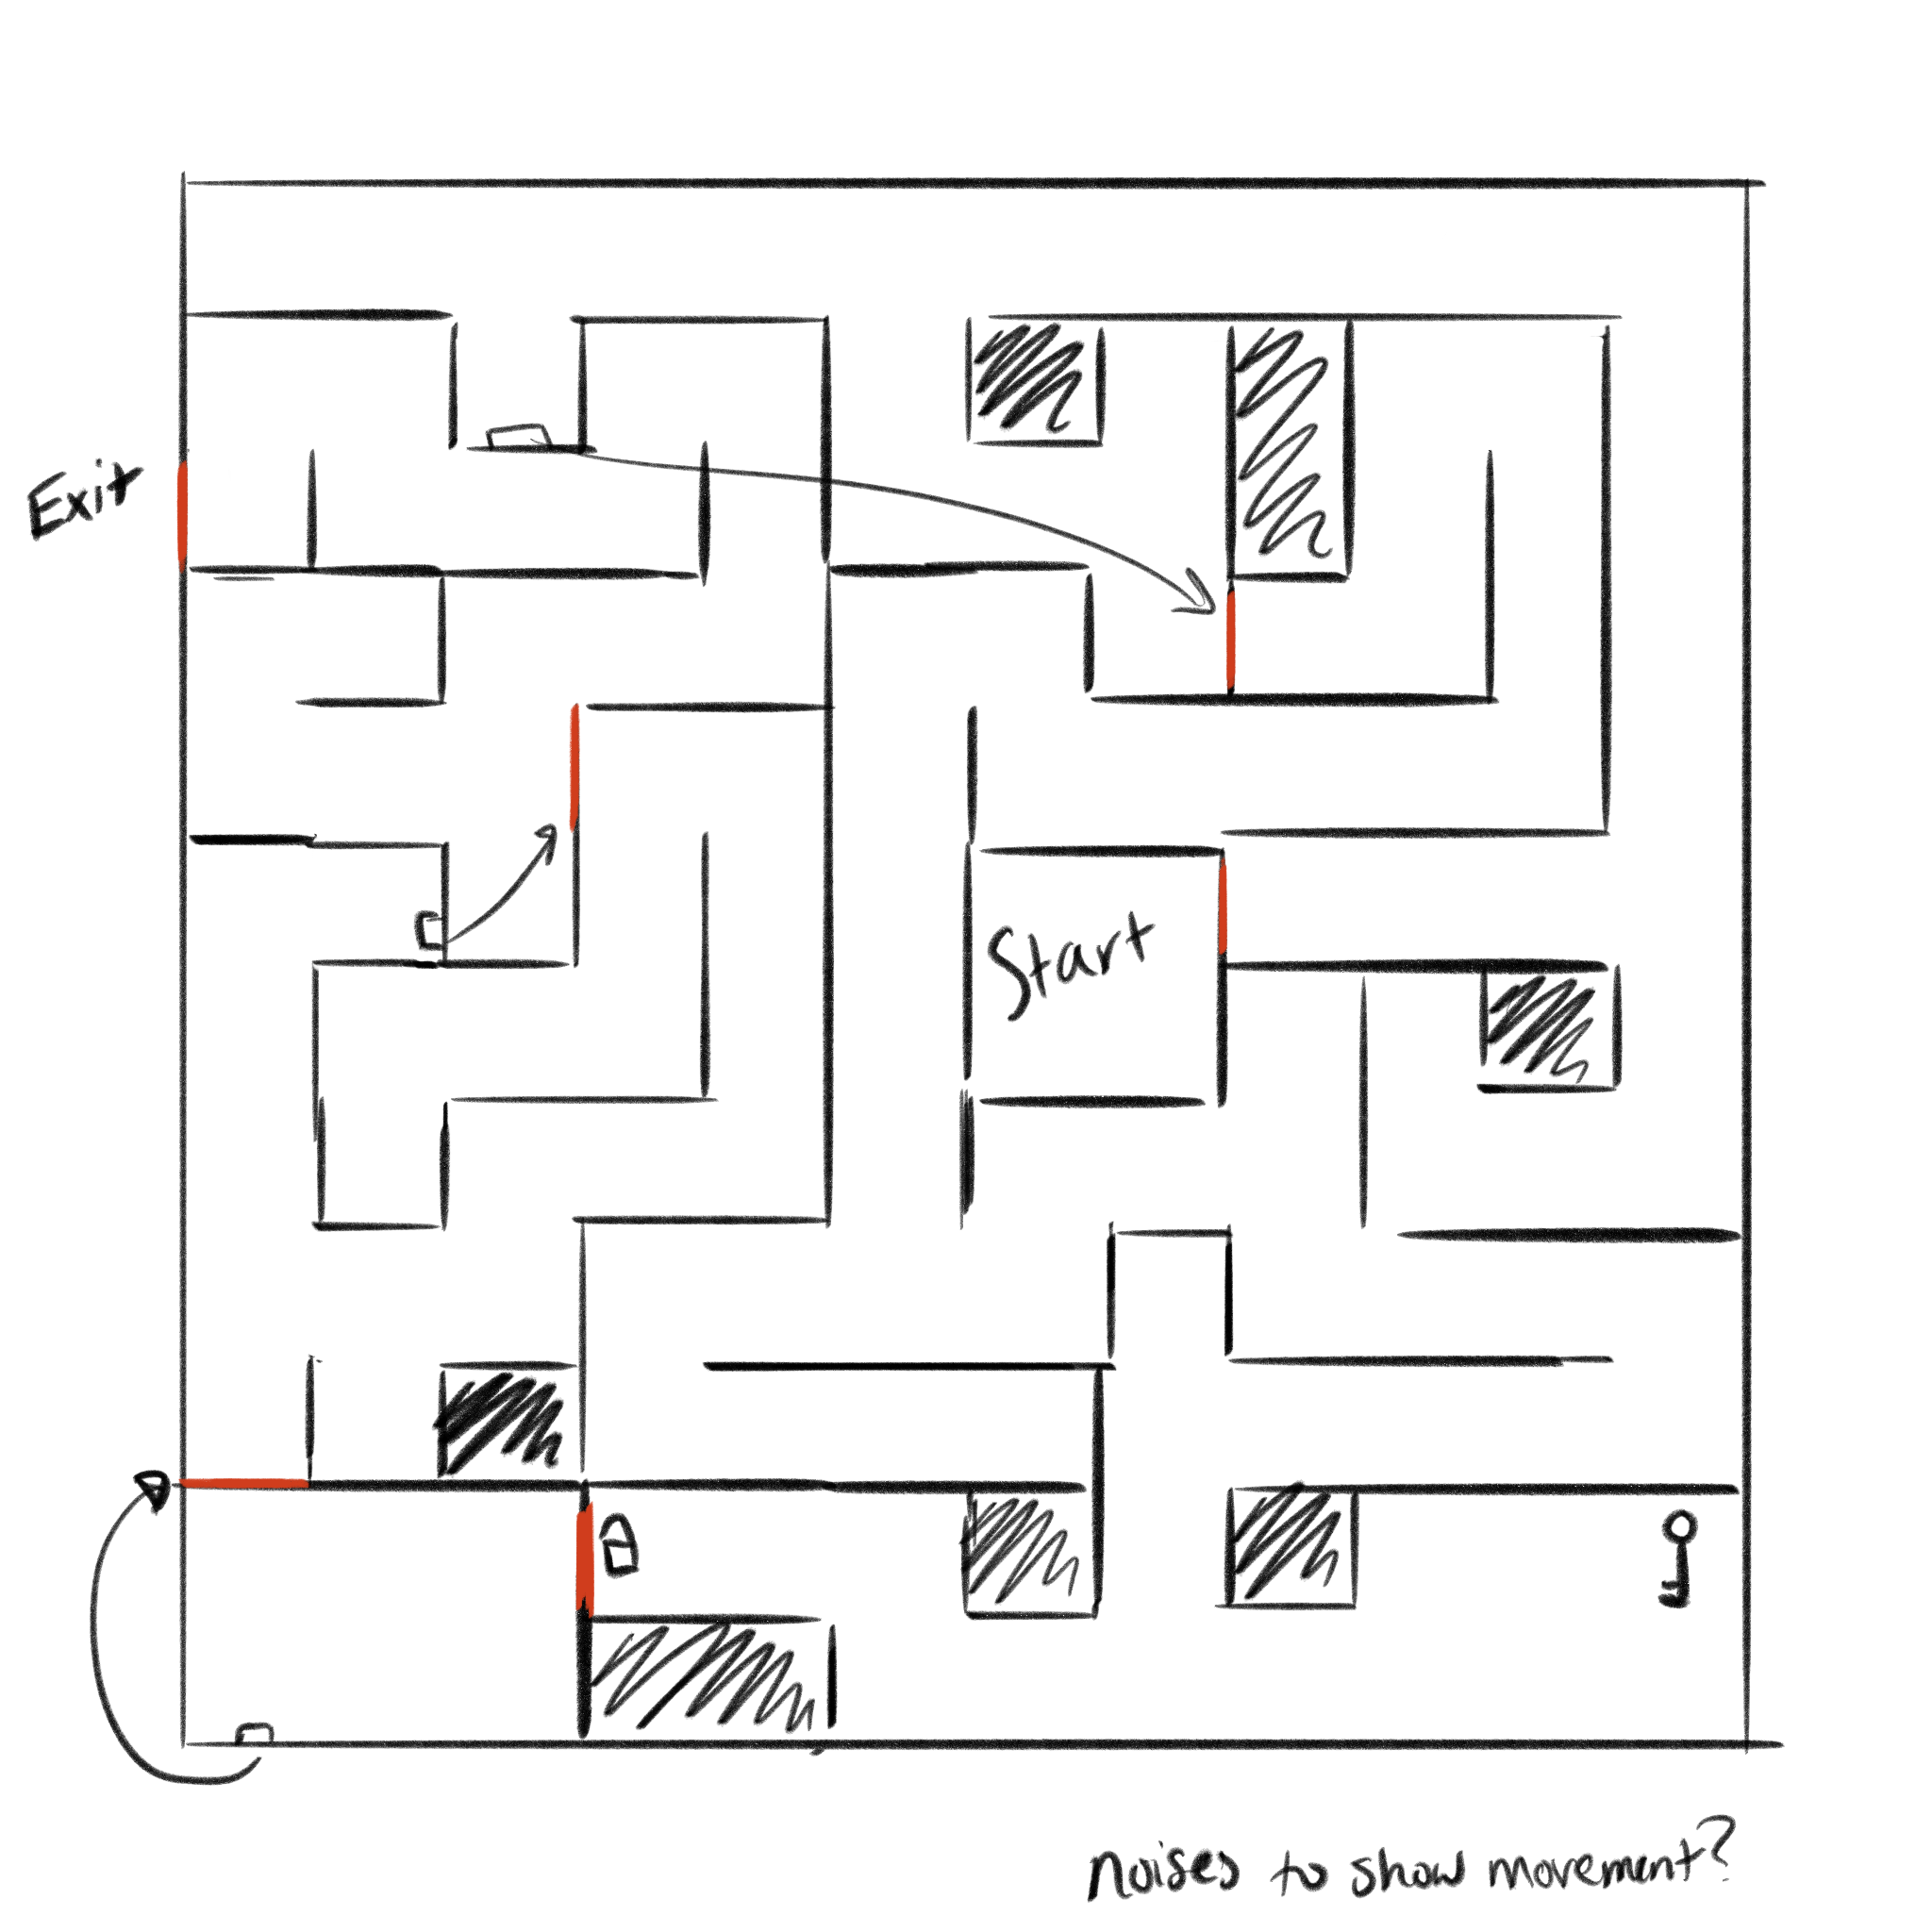 Exit
Start
noises to show movement?